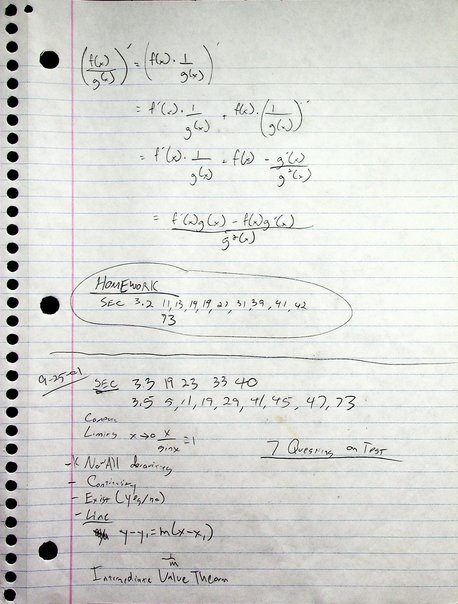 (f(x)/g(x))' = (f(x) · 1/g(x))'
= f'(x) · 1/g(x) + f(x) · (1/g(x))'
= f'(x) · 1/g(x) + f(x) - g'(x)/g²(x)
= f'(x)g(x) - f(x)g'(x)/g²(x)
HOMEWORK
SEC 3.2 11, 13, 19, 19, 27, 31, 39, 41, 42
73
9-25-01
SEC 3.3 19 23 33 40
3.5 5, 11, 19, 29, 41, 45, 47, 73
Common
Limits x→0 x/sinx = 1
7 Questions on Test
Know All
- Continuity
- Exist (yes/no)
- Line
y-y₁=m(x-x₁)
1/m
Intermediate Value Theorem